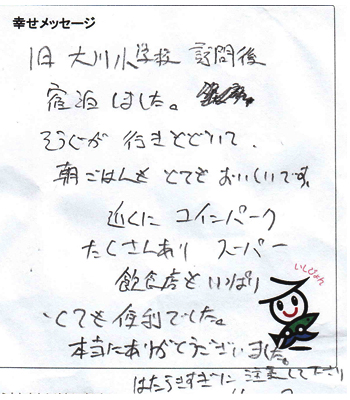 幸せメッセージ
旧 大川小学校 訪問後
宿泊しました。
そうじが 行きとどいて、
朝ごはんも とてもおいしいです。
近くに コインパーク
たくさんあり スーパー
飲食店も いっぱい
とても便利でした。
本当にありがとうございました。
はたらきすぎに 注意して下さい